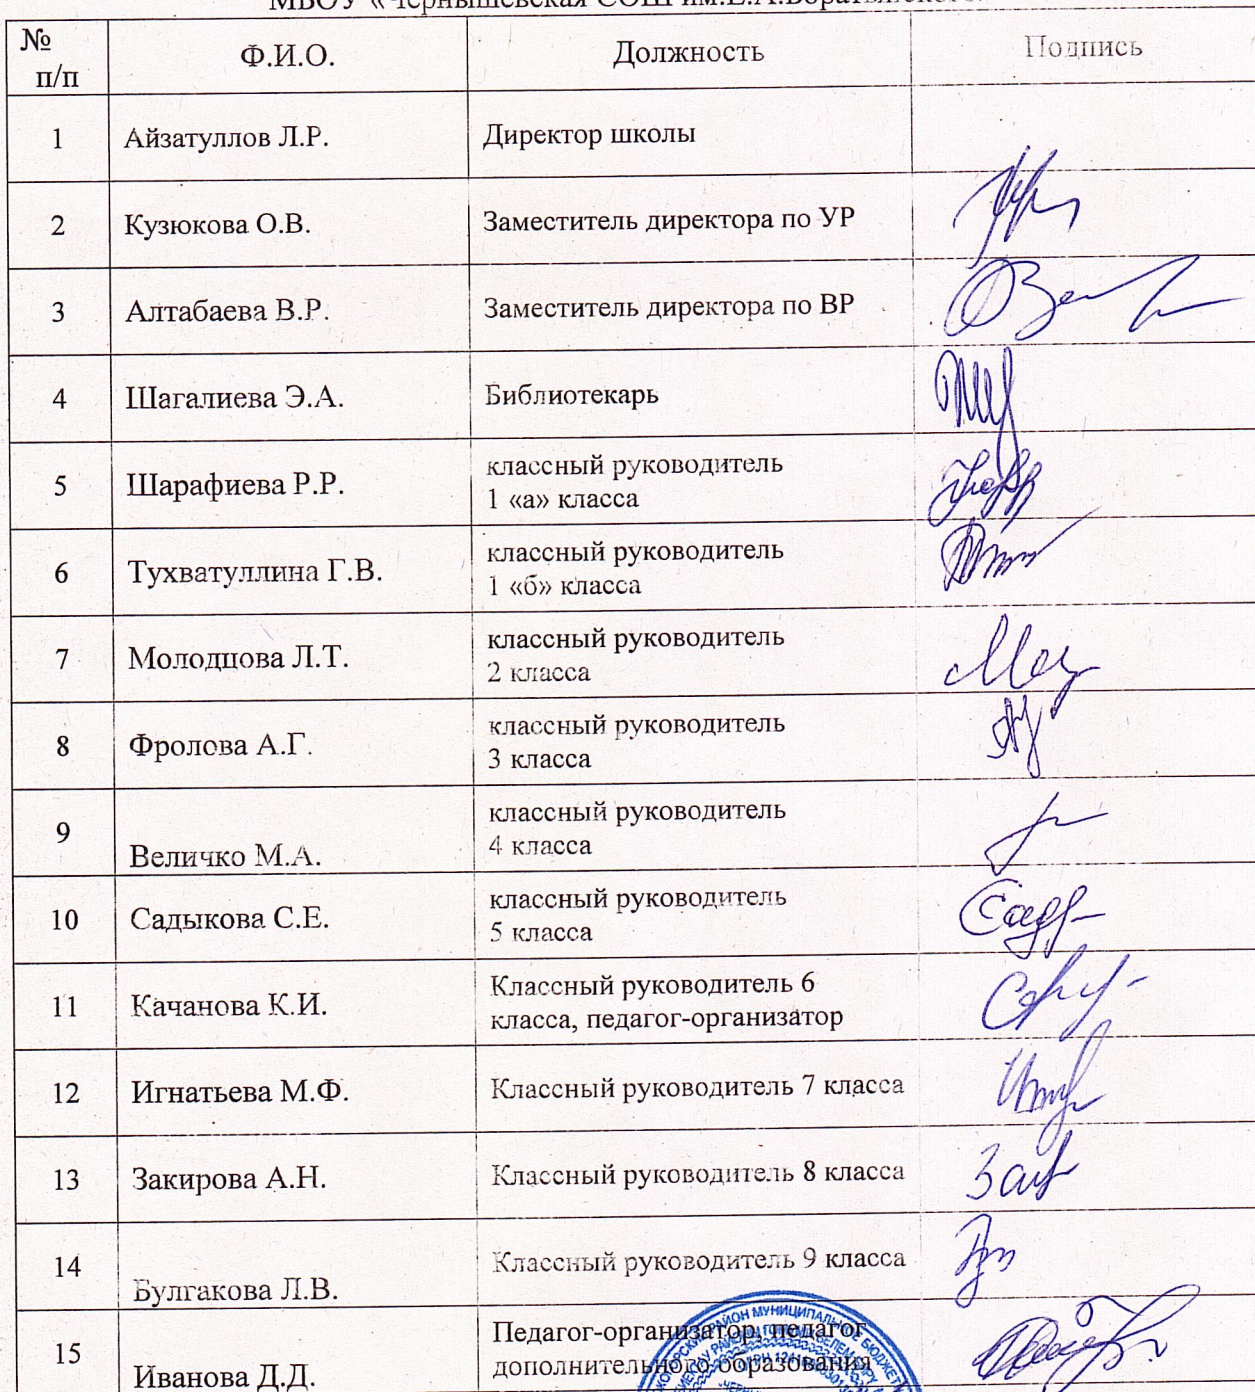 МБОУ «Чернышевская СОШ им.Е.А.Боратынского»
№ п/п Ф.И.О. Должность Подпись
1 Айзатуллов Л.Р. Директор школы
2 Кузюкова О.В. Заместитель директора по УР
3 Алтабаева В.Р. Заместитель директора по ВР
4 Шагалиева Э.А. Библиотекарь
5 Шарафиева Р.Р. классный руководитель
1 «а» класса
6 Тухватуллина Г.В. классный руководитель
1 «б» класса
7 Молодцова Л.Т. классный руководитель
2 класса
8 Фролова А.Г. классный руководитель
3 класса
9 Величко М.А. классный руководитель
4 класса
10 Садыкова С.Е. классный руководитель
5 класса
11 Качанова К.И. Классный руководитель 6
класса, педагог-организатор
12 Игнатьева М.Ф. Классный руководитель 7 класса
13 Закирова А.Н. Классный руководитель 8 класса
14 Булгакова Л.В. Классный руководитель 9 класса
15 Иванова Д.Д. Педагог-организатор, педагог
дополнительного образования